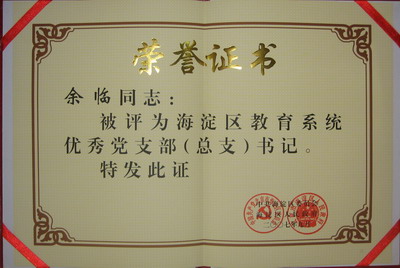 荣誉证书
余临同志：
被评为海淀区教育系统
优秀党支部(总支)书记。
特发此证